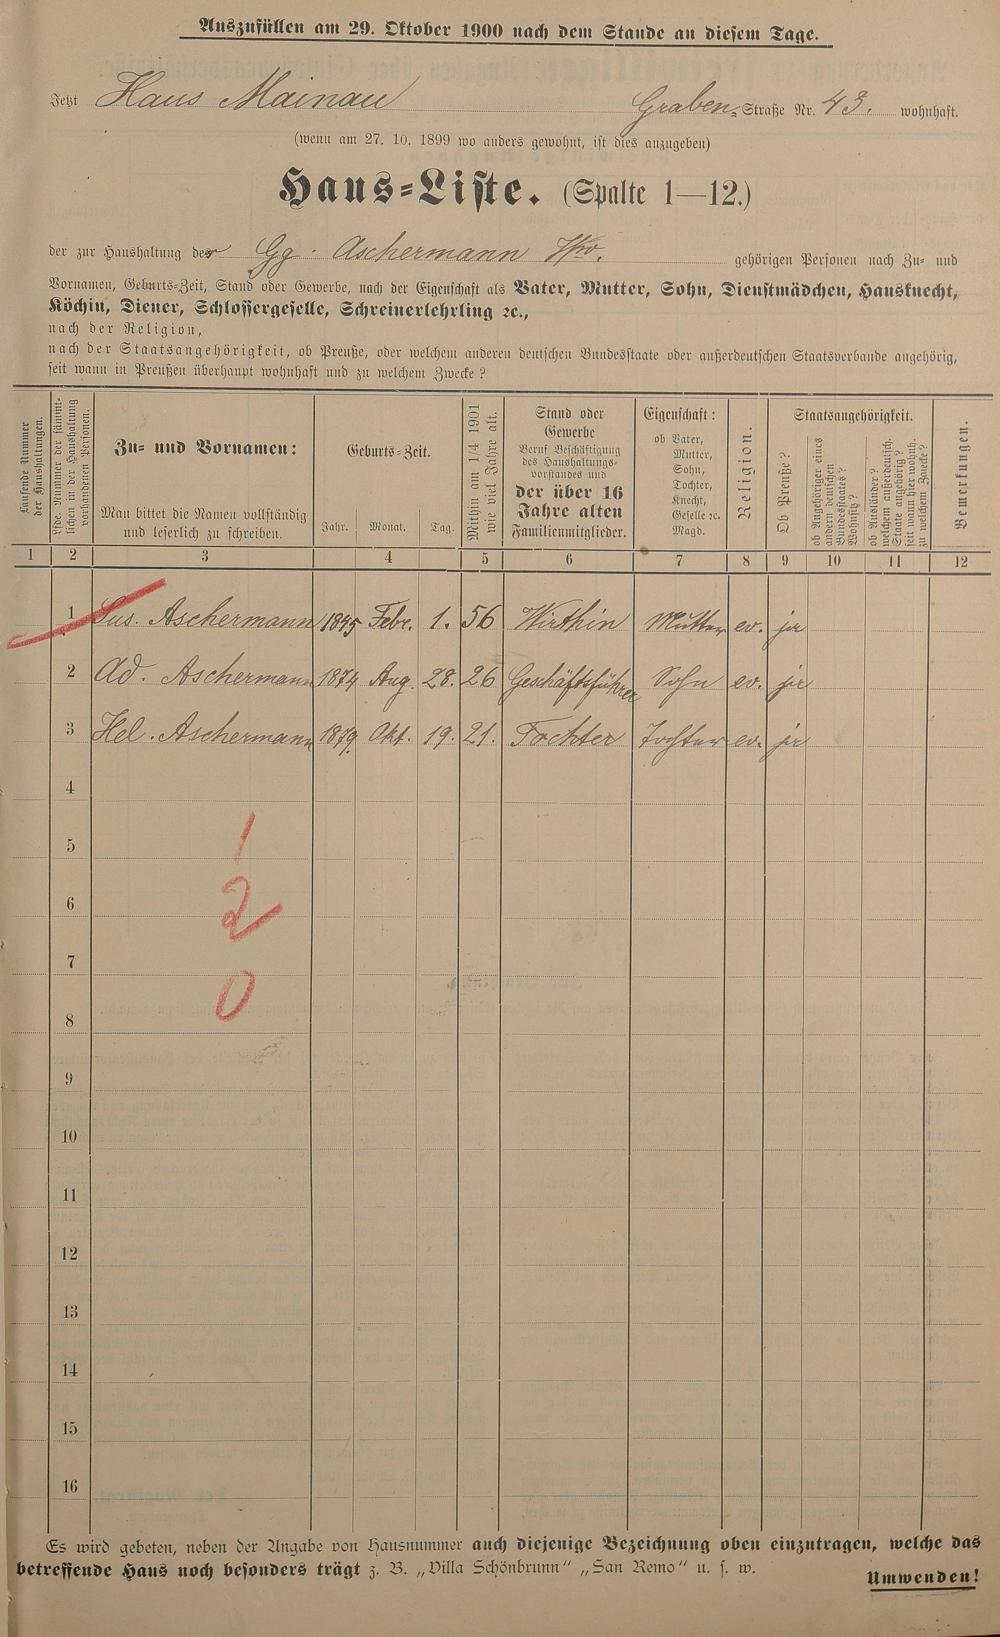 Auszufüllen am 29. Oktober 1900 nach dem Stande an diesem Tage.
Jetzt Haus Mainau Graben-Straße Nr. 43. wohnhaft.
(wenn am 27. 10. 1899 wo anders gewohnt, ist dies anzugeben)
Haus-Liste. (Spalte 1—12.)
der zur Haushaltung der Gg. Aschermann Ww. gehörigen Personen nach Zu- und
Vornamen, Geburts-Zeit, Stand oder Gewerbe, nach der Eigenschaft als Vater, Mutter, Sohn, Dienstmädchen, Hausknecht,
Köchin, Diener, Schlossergeselle, Schreinerlehrling ꝛc.,
nach der Religion,
nach der Staatsangehörigkeit, ob Preuße, oder welchem anderen deutschen Bundesstaate oder außerdeutschen Staatsverbande angehörig,
seit wann in Preußen überhaupt wohnhaft und zu welchem Zwecke?
Laufende Nummer
der Haushaltungen.
Lfde. Nummer der sämmt-
lichen in der Haushaltung
vorhandenen Personen.
Zu- und Vornamen:
Man bittet die Namen vollständig
und leserlich zu schreiben.
Geburts-Zeit.
Jahr. Monat. Tag.
Mithin am 1/4 1901
wie viel Jahre alt.
Stand oder
Gewerbe
Beruf Beschäftigung
des Haushaltungs-
vorstandes und
der über 16
Jahre alten
Familienmitglieder.
Eigenschaft:
ob Vater,
Mutter,
Sohn,
Tochter,
Knecht,
Geselle ꝛc.
Magd.
Religion.
Staatsangehörigkeit.
Ob Preuße?
ob Angehöriger eines
andern deutschen
Bundesstaates?
Wohnsitz?
ob Ausländer?
welchem außerdeutsch.
Staate angehörig?
seit wann hier wohnh.
zu welchem Zwecke?
Bemerkungen.
1 2 3 4 5 6 7 8 9 10 11 12
1 Sus. Aschermann 1845 Febr. 1. 56 Wirthin Mutter ev. ja
2 Ad. Aschermann 1874 Aug. 28. 26 Geschäftsführer Sohn ev. ja
3 Hel. Aschermann 1879 Okt. 19. 21. Tochter Tochter ev. ja
4
1
5
2
6
7
0
8
9
10
11
12
13
14
15
16
Es wird gebeten, neben der Angabe von Hausnummer auch diejenige Bezeichnung oben einzutragen, welche das
betreffende Haus noch besonders trägt z. B. „Villa Schönbrunn“ „San Remo“ u. s. w.
Umwenden!